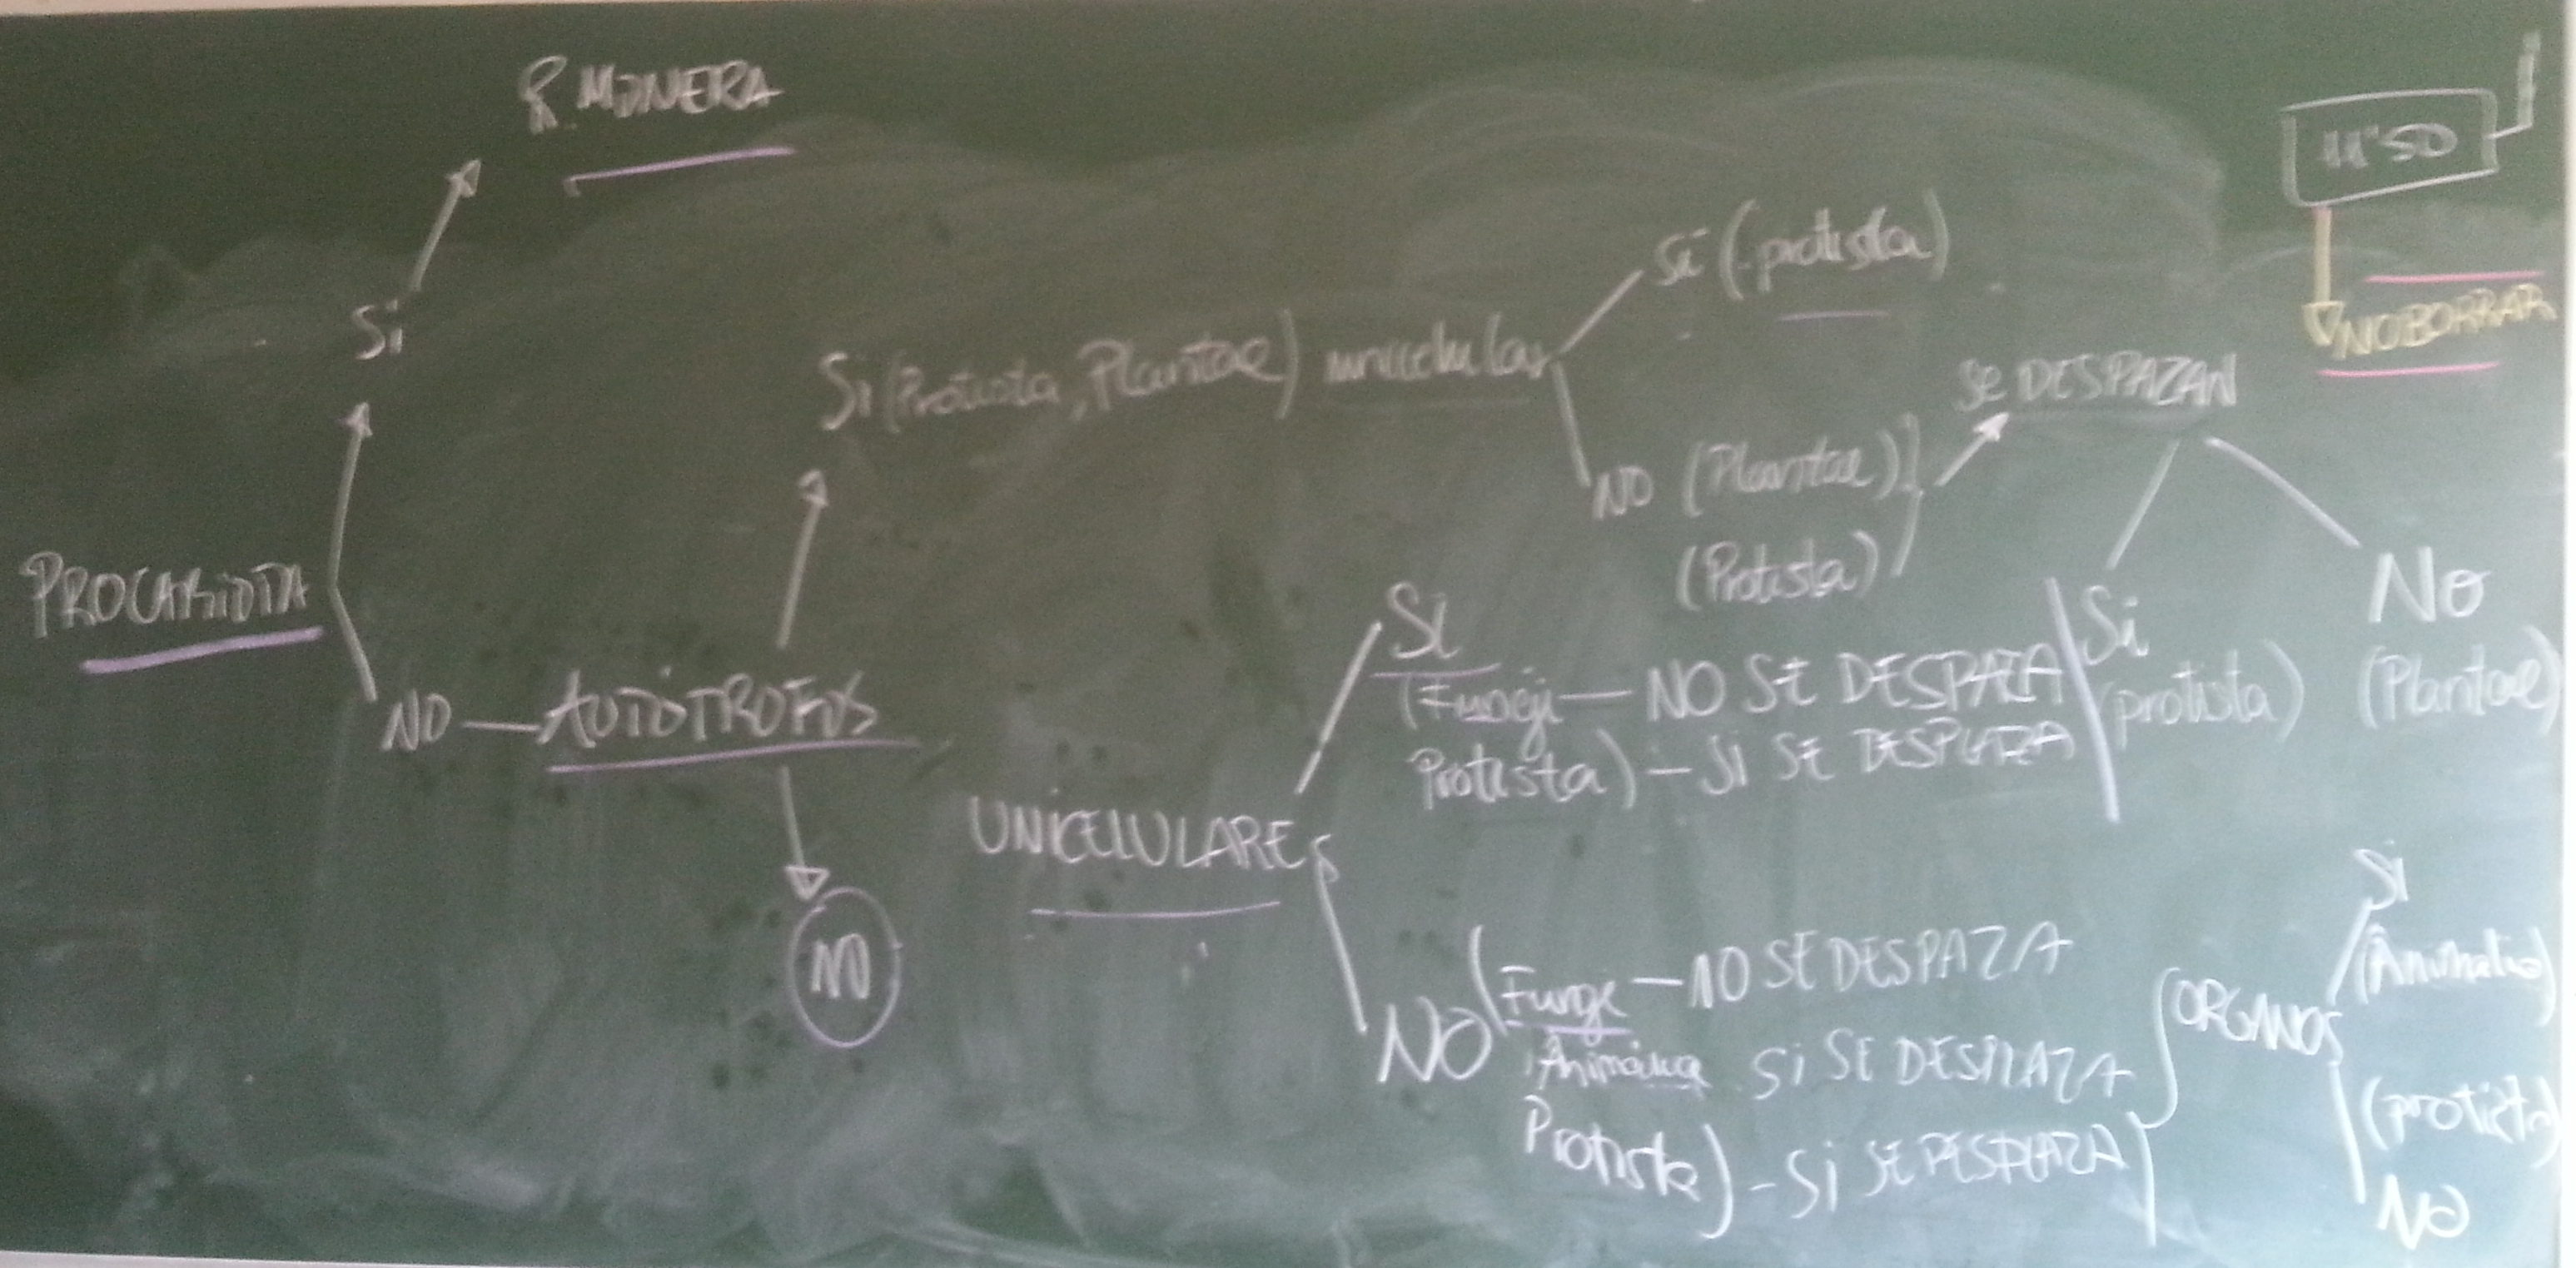 R. MONERA
11'50
Si
Si (protista)
NO BORRAR
Si (Protista, Plantae) unicelular
SE DESPAZAN
NO (Plantae)
(Protista)
PROCARIOTA
Si
No
Si
(Fungi — NO SE DESPAZA
(protista)
(Plantae)
NO — AUTÓTROFOS
Protista) — Si SE DESPLAZA
UNICELULARES
Si
NO
(Animalia)
NO (Fungi — NO SE DESPAZA
ORGANOS
Animalia Si SE DESPLAZA
(protista)
Protista) - Si SE DESPLAZA
NO